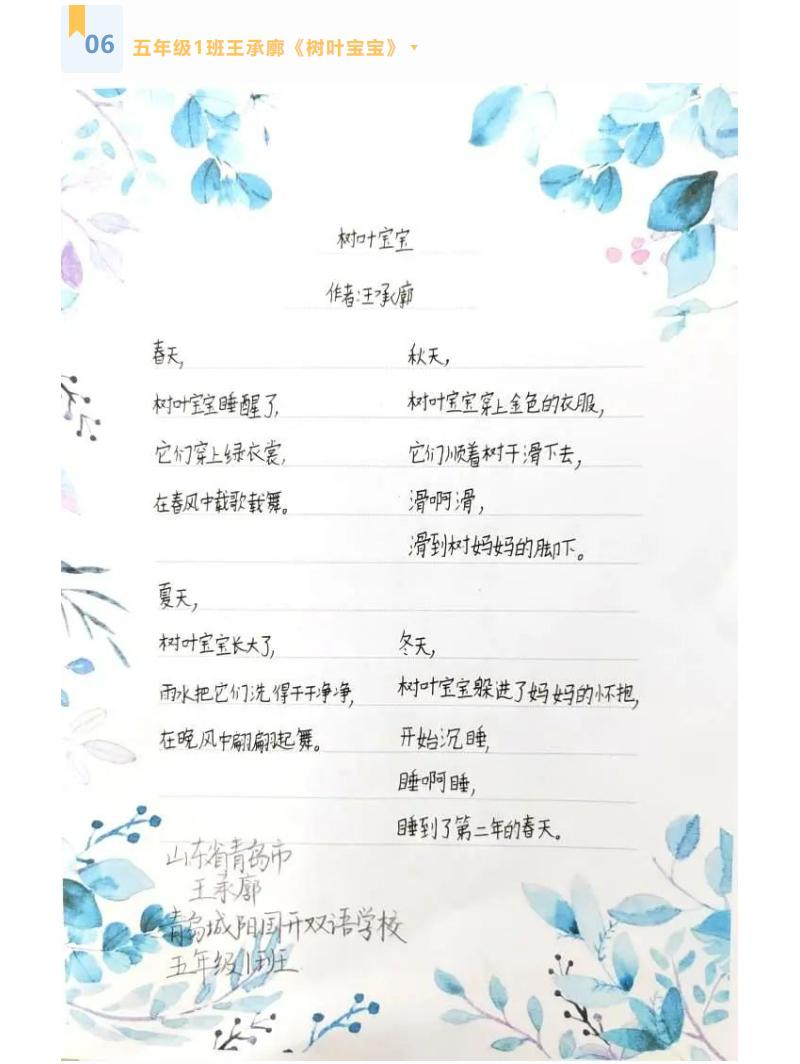 06
五年级1班王承廓《树叶宝宝》
树叶宝宝
作者:王承廓
春天,
树叶宝宝睡醒了,
它们穿上绿衣裳,
在春风中载歌载舞。
夏天,
树叶宝宝长大了,
雨水把它们洗得干干净净,
在晚风中翩翩起舞。
秋天,
树叶宝宝穿上金色的衣服,
它们顺着树干滑下去,
滑啊滑,
滑到树妈妈的脚下。
冬天,
树叶宝宝躲进了妈妈的怀抱,
开始沉睡,
睡啊睡,
睡到了第二年的春天。
山东省青岛市
王承廓
青岛城阳国开双语学校
五年级1班